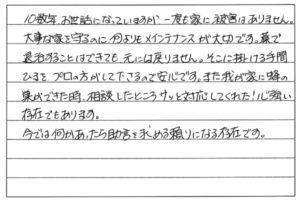 10数年、お世話になっていますが、一度も家に被害はありません。
大事な家を守るのに何よりもメインテナンスが大切です。薬で
退治することはできても、元には戻りません。そこに掛ける手間
ひまを、プロの方がして下さるので安心です。また我が家に蜂の
巣ができた時、相談したところサッと対応してくれた!心強い
存在でもあります。
今では何かあったら助言を求める頼りになる存在です。